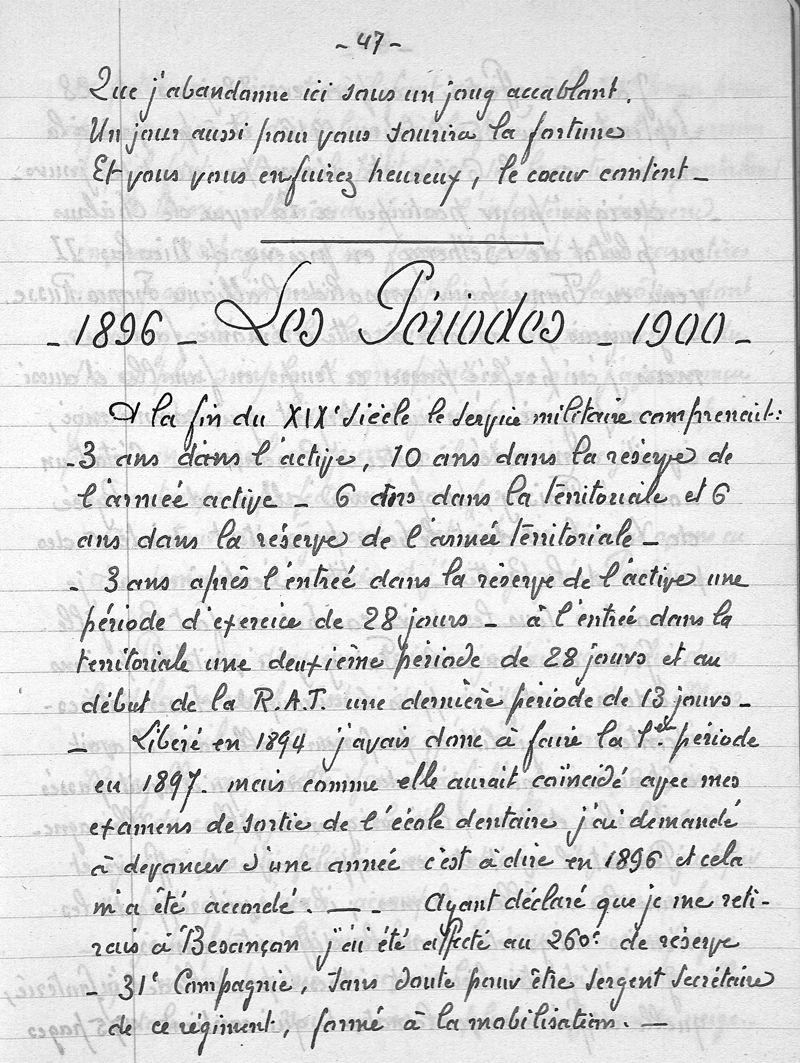 - 47 -
Que j'abandonne ici sous un joug accablant.
Un jour aussi pour vous sourira la fortune
Et vous vous enfuirez heureux, le coeur content -
- 1896 - Les Périodes - 1900 -
A la fin du XIXe siècle le service militaire comprenait:
- 3 ans dans l'active, 10 ans dans la réserve de
l'armée active - 6 ans dans la territoriale et 6
ans dans la réserve de l'armée territoriale -
- 3 ans après l'entrée dans la réserve de l'active une
période d'exercice de 28 jours - à l'entrée dans la
territoriale une deuxième période de 28 jours et au
début de la R.A.T. une dernière période de 13 jours -
- Libéré en 1894 j'avais donc à faire la 1ère période
en 1897. mais comme elle aurait coïncidé avec mes
examens de sortie de l'école dentaire j'ai demandé
à devancer d'une année c'est à dire en 1896 et cela
m'a été accordé. - - Ayant déclaré que je me reti-
rais à Besançon j'ai été affecté au 260e de réserve
- 31e Compagnie, sans doute pour être sergent secrétaire
de ce régiment, formé à la mobilisation. -